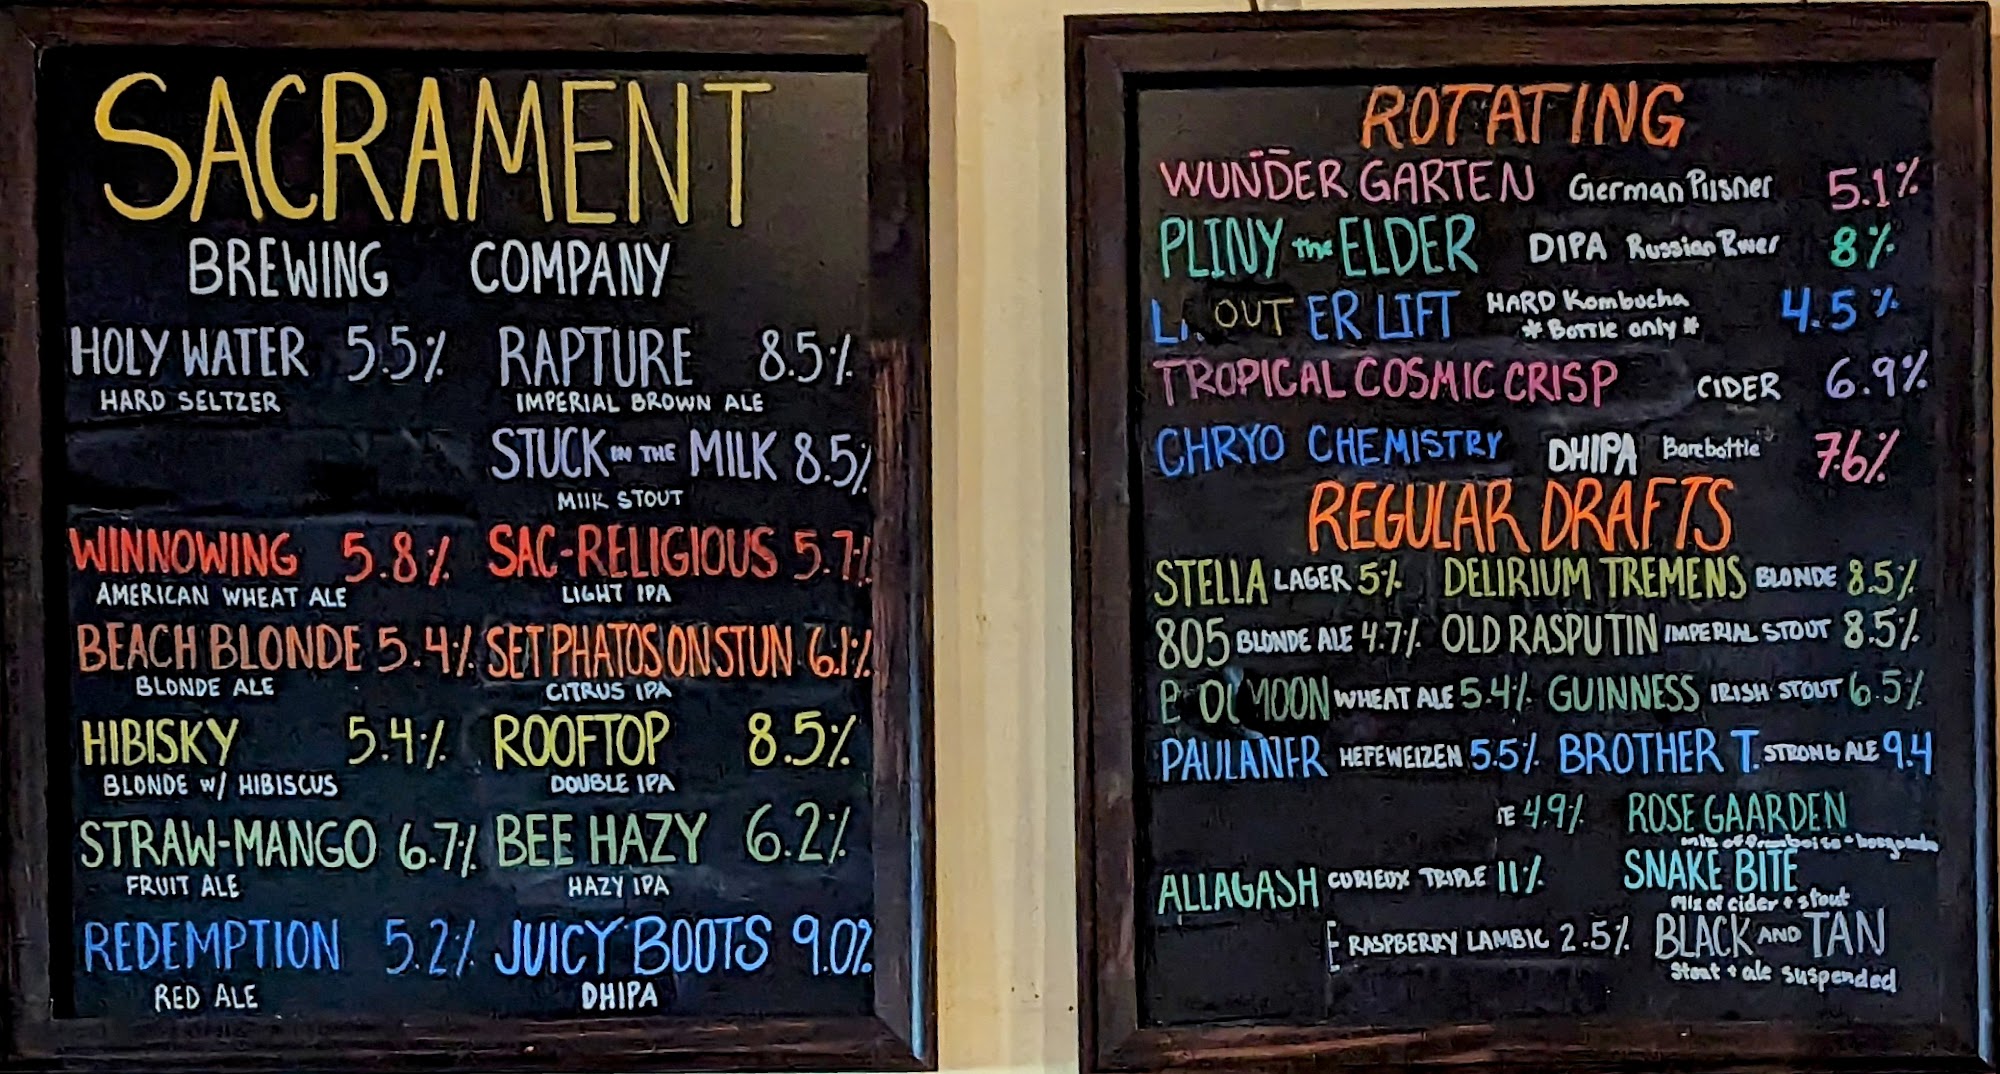 SACRAMENT
BREWING COMPANY
HOLY WATER 5.5%
HARD SELTZER
WINNOWING 5.8%
AMERICAN WHEAT ALE
BEACH BLONDE 5.4%
BLONDE ALE
HIBISKY 5.4%
BLONDE W/ HIBISCUS
STRAW-MANGO 6.7%
FRUIT ALE
REDEMPTION 5.2%
RED ALE
RAPTURE 8.5%
IMPERIAL BROWN ALE
STUCK IN THE MILK 8.5%
MILK STOUT
SAC-RELIGIOUS 5.7%
LIGHT IPA
SET PHATOS ON STUN 6.1%
CITRUS IPA
ROOFTOP 8.5%
DOUBLE IPA
BEE HAZY 6.2%
HAZY IPA
JUICY BOOTS 9.0%
DHIPA
ROTATING
WUNDER GARTEN German Pilsner 5.1%
PLINY the ELDER DIPA Russian River 8%
OUT ER LIFT HARD Kombucha 4.5%
* Bottle only *
TROPICAL COSMIC CRISP CIDER 6.9%
CHRYO CHEMISTRY DHIPA Barebottle 7.6%
REGULAR DRAFTS
STELLA LAGER 5% DELIRIUM TREMENS BLONDE 8.5%
805 BLONDE ALE 4.7% OLD RASPUTIN IMPERIAL STOUT 8.5%
MOON WHEAT ALE 5.4% GUINNESS IRISH STOUT 6.5%
PAULANER HEFEWEIZEN 5.5% BROTHER T. STRONG ALE 9.4
TE 4.9% ROSE GAARDEN
mix of framboise + hoegaarden
ALLAGASH CURIEUX TRIPLE 11% SNAKE BITE
mix of cider + stout
E RASPBERRY LAMBIC 2.5% BLACK AND TAN
Stout + ale suspended